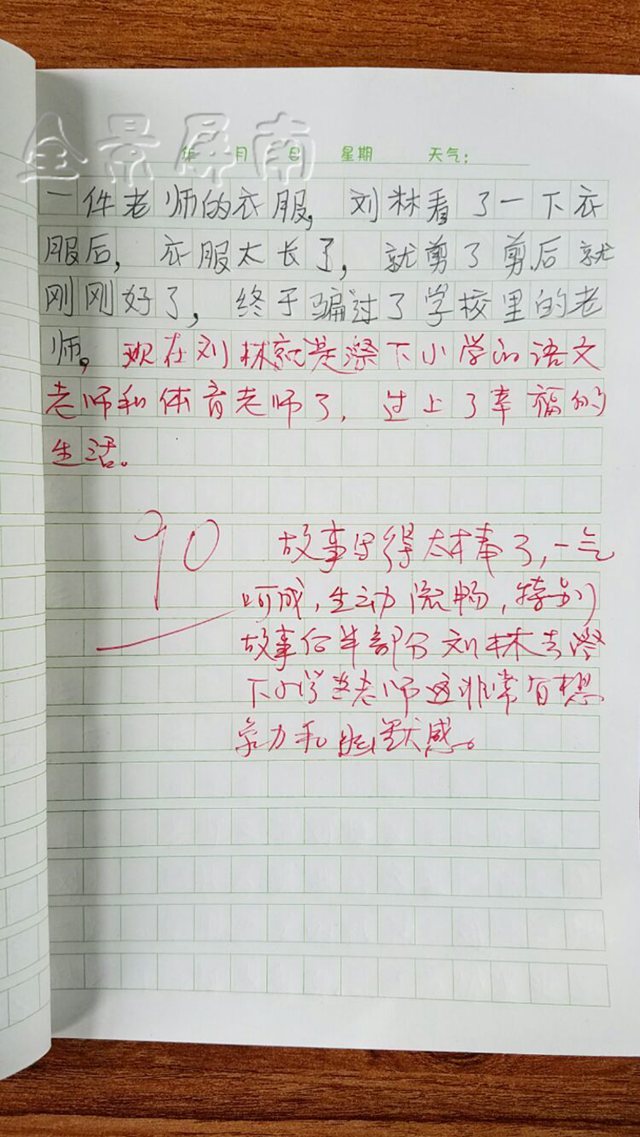 全景屏南
年 月 日 星期 天气：
一件老师的衣服，刘林看了一下衣
服后，衣服太长了，就剪了剪后就
刚刚好了，终于骗过了学校里的老
师。现在刘林就是漈下小学的语文
老师和体育老师了，过上了幸福的
生活。
90
故事写得太棒了，一气
呵成，生动流畅，特别
故事后半部分刘林去漈
下小学当老师这非常有想
象力和幽默感。